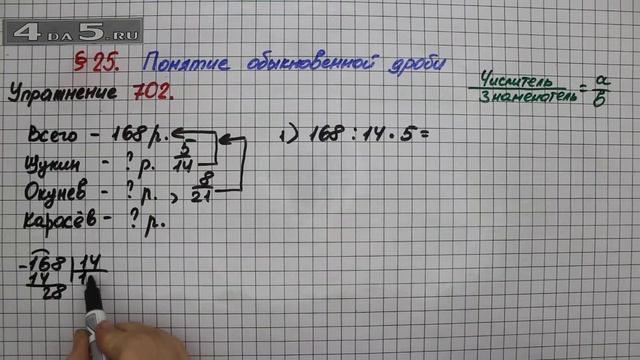 4 DA 5.RU
§ 25. Понятие обыкновенной дроби
Упражнение 702.
Числитель / Знаменатель = a/b
Всего - 168 р.
1) 168 : 14 · 5 =
Щукин - ? р. 5/14
Окунев - ? р., 8/21
Карасёв - ? р.
- 168 | 14
14 | 1
28